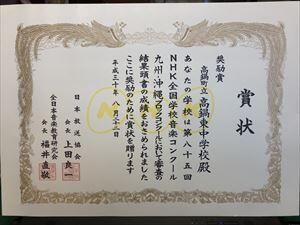 賞状
奨励賞
高鍋町立 高鍋東中学校殿
あなたの学校は第八十五回
NHK全国学校音楽コンクール
九州・沖縄ブロックコンクールにおいて審査の
結果頭書の成績をおさめられました
ここに奨励のために賞状を贈ります
平成三十年 八月二十三日
日本放送協会
会長 上田良一
全日本音楽教育研究会
会長 福井直敬